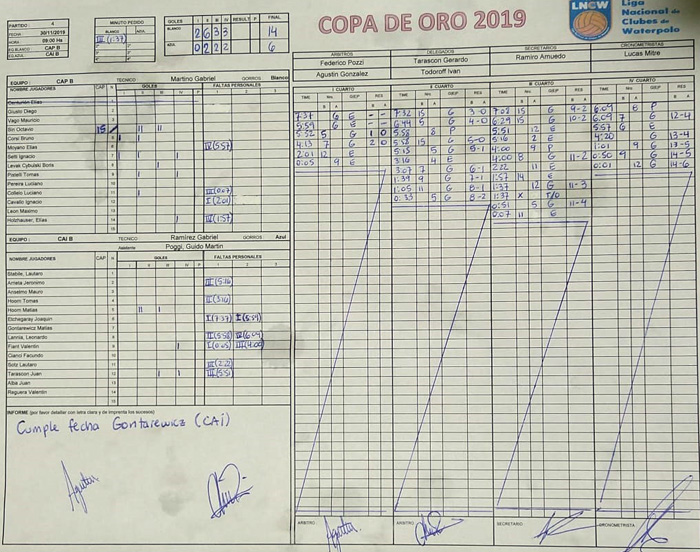 PARTIDO : 4
FECHA 30/11/2019
HORA 09:00 Hs
EQ BLANCO CAP B
EQ AZUL CAI B
MINUTO PEDIDO
BLANCO AZUL
III (1:37)
GOLES I II III IV RESULT. P FINAL
BLANCO 2 6 3 3 14
AZUL 0 2 2 2 6
COPA DE ORO 2019
LNCW
Liga Nacional de Clubes de Waterpolo
ARBITROS DELEGADOS SECRETARIOS CRONOMETRISTAS
Federico Pozzi Tarascon Gerardo Ramiro Amuedo Lucas Mitre
Agustin Gonzalez Todoroff Ivan
EQUIPO : CAP B TECNICO Martino Gabriel GORROS Blanco
NOMBRE JUGADORES CAP N GOLES FALTAS PERSONALES
Giusto Diego
Vago Mauricio
Siri Octavio 15
Corsi Bruno
Moyano Elias IV(5:57)
Setti Ignacio
Levak Cybulski Boris
Pistelli Tomas
Pereira Luciano
Collelo Luciano III(0:07)
Cavallo Ignacio I(2:01)
Leon Maximo
Holzhauser, Elias III(1:57)
EQUIPO : CAI B TECNICO Ramirez Gabriel GORROS Azul
Asistente Poggi, Guido Martin
NOMBRE JUGADORES CAP N GOLES FALTAS PERSONALES
Stabile, Lautaro
Arrieta Jeronimo III(5:16)
Anselmo Mauro
Hoom Tomas II(3:16)
Hoom Matias
Etchegaray Joaquin I(7:37) I(5:59)
Gontarewicz Matias
Lennis, Leonardo II(5:58) IV(6:09)
Fient Valentin I(0:05) III(4:00)
Gianci Facundo
Sotz Lautaro III(2:22)
Tarascon Juan III(5:51)
Alba Juan
Raguera Valentin
I CUARTO II CUARTO III CUARTO IV CUARTO
TIME Nro. G/E/P RES
7:37 6 E - -
5:59 6 E - -
5:32 5 G 1 0
4:13 7 G 2 0
2:01 12 E
0:05 9 E
7:32 15 G 3-0
6:44 15 G 4-0
5:58 8 P
5:58 15 G 5-0
5:15 5 G 5-1
3:16 4 E
3:07 7 G 6-1
1:39 9 G 7-1
1:05 11 G 8-1
0:33 5 G 8-2
7:08 15 G 9-2
6:29 15 G 10-2
5:51 12 E
5:16 2 E
4:00 9 P
4:00 8 G 11-2
2:22 11 E
1:57 14 E
1:37 12 G 11-3
1:37 X T/O
0:51 5 G 11-4
0:07 11 E
6:09 8 P
6:09 7 G 12-4
5:57 6 E
4:20 G 13-4
1:01 9 G 13-5
0:50 9 G 14-5
0:01 12 G 14-6
INFORME (por favor detallar con letra clara y de Imprenta los sucesos)
Cumple fecha Gontarewicz (CAI)
ARBITRO ARBITRO SECRETARIO CRONOMETRISTA